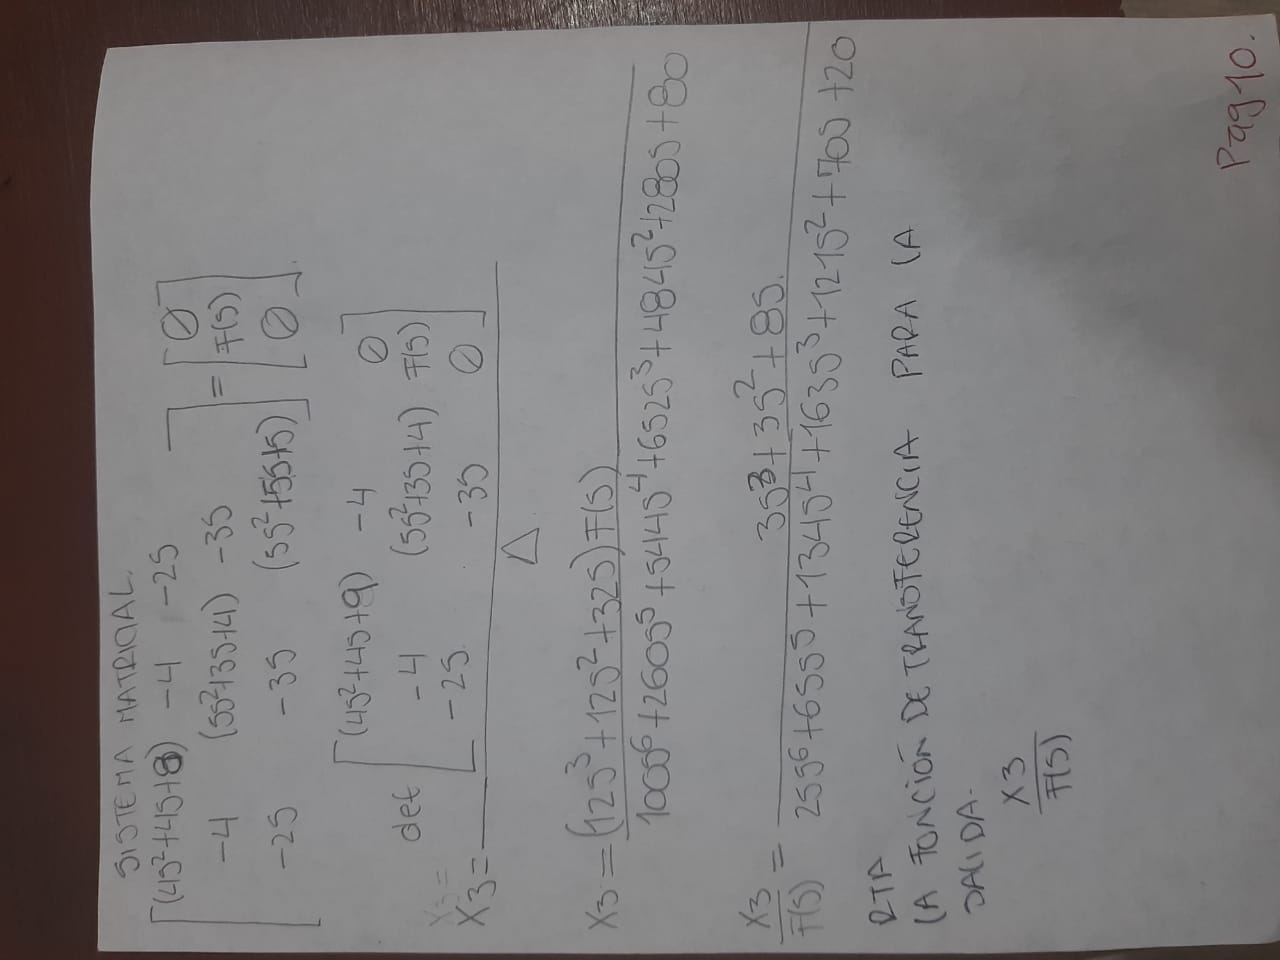 SISTEMA MATRICIAL.
[(4s²+4s+8) -4 -2s
-4 (5s²+3s+4) -3s = F(s)
-2s -3s (5s²+5s+5)] [∅ ∅]
(4s²+4s+9) -4 ∅
det -4 (5s²+3s+4) F(s)
X3=
-2s -3s ∅
X3=
Δ
X3 = (12s³+12s²+32s)F(s)
100s⁶+260s⁵+544s⁴+652s³+484s²+280s+80
X3 = 3s³+3s²+8s.
F(s) 25s⁶+65s⁵+134s⁴+163s³+121s²+70s+20
RTA
LA FUNCIÓN DE TRANSFERENCIA PARA LA
SALIDA.
X3
F(s)
Pag 10.